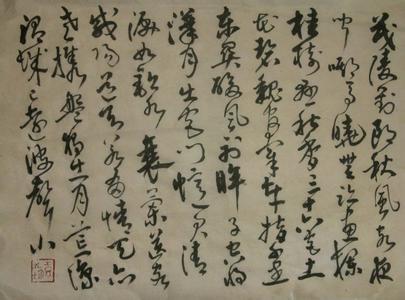 茂陵劉郎秋風客夜
聞嘶馬曉無跡畫欄
桂樹懸秋香三十六宮土
花碧魏官牽車指千里
東關酸風射眸子空將
漢月出宮門憶君清
淚如鉛水衰蘭送客
咸陽道天若有情天亦
老攜盤獨出月荒涼
渭城已遠波聲小